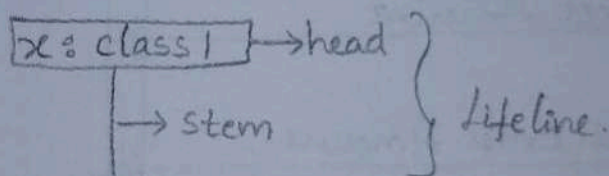 x: class1 → head
→ stem
Lifeline.